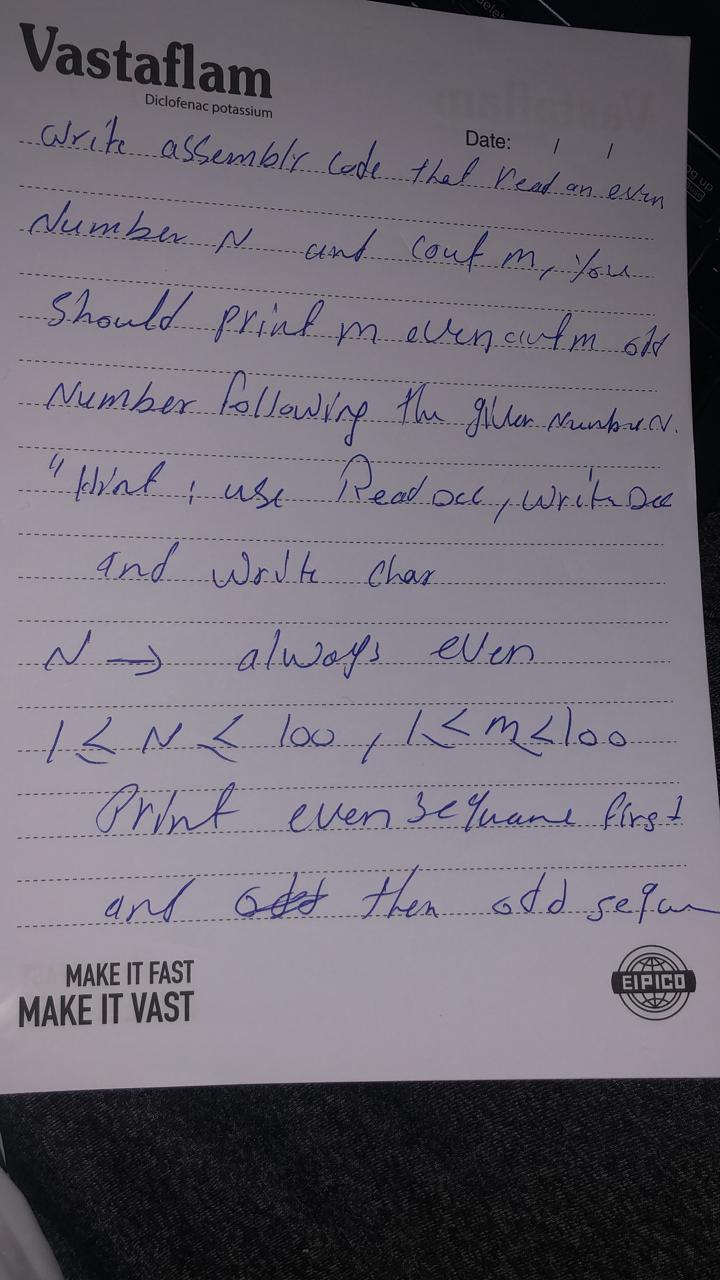 Vastaflam
Diclofenac potassium
Date: / /
write assembly code that read an even
Number N and cout m, you
should print m even and m odd
Number following the given number N.
"Hint : use ReadDec, writeDec
and write char
N → always even
1 ≤ N ≤ 100 , 1 ≤ m ≤ 100
Print even first
and then odd
MAKE IT FAST
MAKE IT VAST
EIPICO